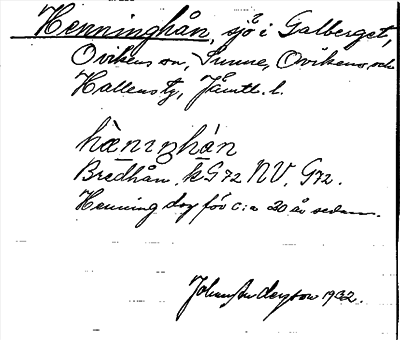 Henninghån, sjö i Galberget,
Ovikens sn, Sunne, Ovikens och
Hallens tg, Jämtl. l.
hæ̀nıŋhån
Bredhån, k G72 NV, G72.
Henning dog för c:a 20 år sedan.
Johan Anderson 1932.